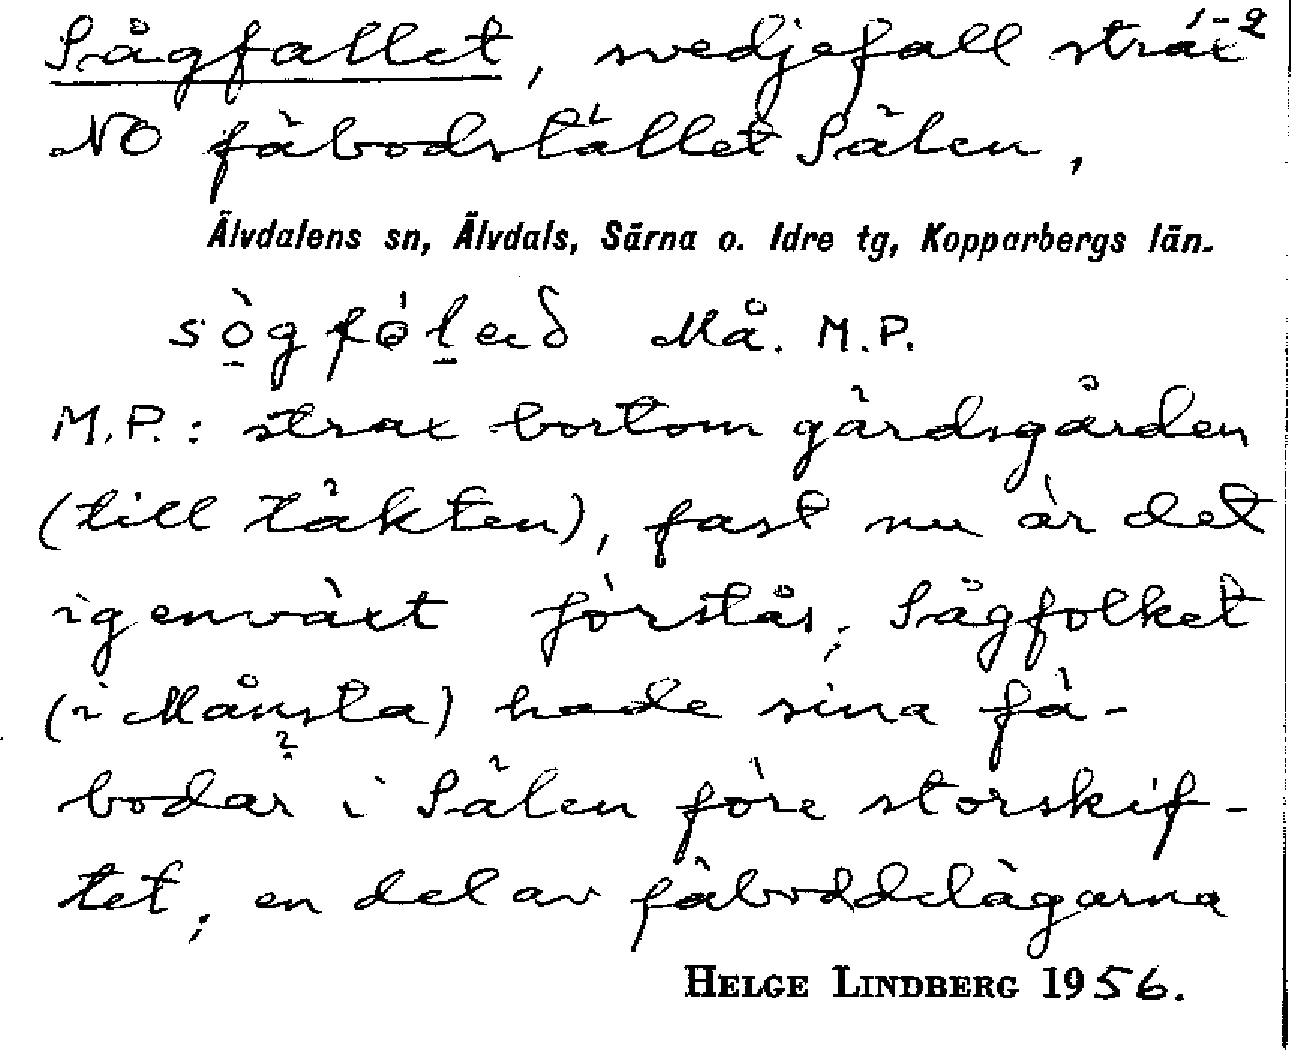 Sågfallet, svedjefall strax 1-2
NO fäbodstället Sälen,
Älvdalens sn, Älvdals, Särna o. Idre tg, Kopparbergs län.
Må. M.P.
M.P.: strax bortom gärdsgården
(till täkten), fast nu är det
igenväxt förstås; Sågfolket
(i Månsta) hade sina fä-
bodar i Sälen före storskif-
tet; en del av fäboddelägarna
HELGE LINDBERG 1956.